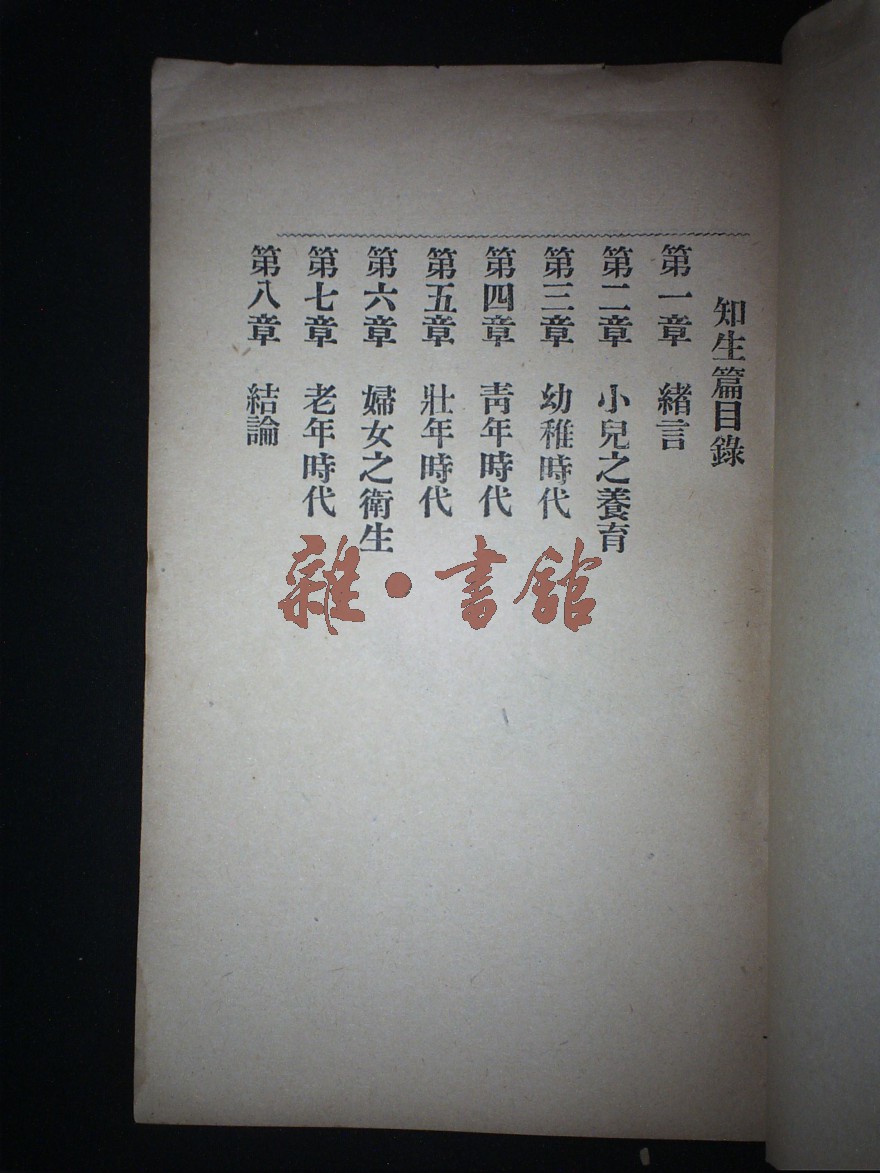 知生篇目錄
第一章　緒言
第二章　小兒之養育
第三章　幼稚時代
第四章　靑年時代
第五章　壯年時代
第六章　婦女之衛生
第七章　老年時代
第八章　結論
雜·書館